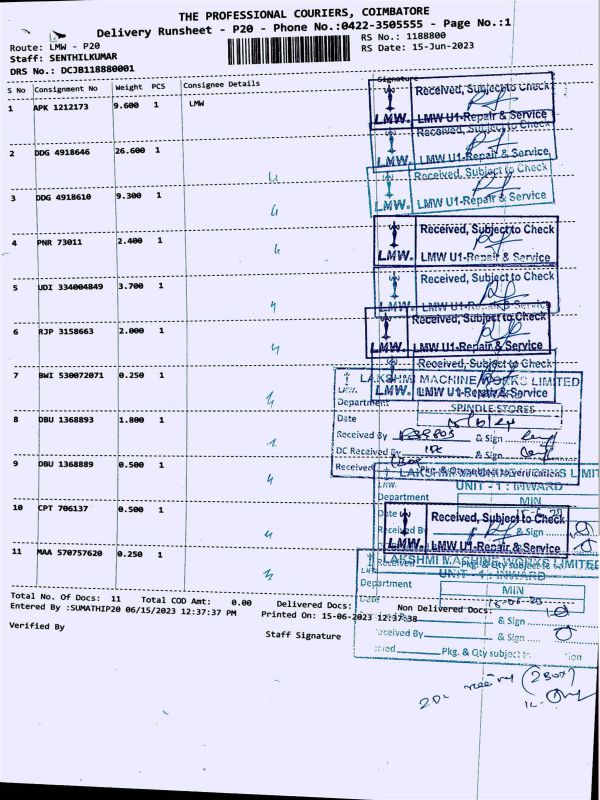 THE PROFESSIONAL COURIERS, COIMBATORE
Delivery Runsheet - P20 - Phone No.:0422-3505555 - Page No.:1
Route: LMW - P20
RS No.: 1188800
Staff: SENTHILKUMAR
RS Date: 15-Jun-2023
DRS No.: DCJB118880001
S No Consignment No Weight PCS Consignee Details Signature
1 APK 1212173 9.600 1 LMW
Received, Subject to Check
LMW. LMW U1-Repair & Service
2 DDG 4918646 26.600 1
Received, Subject to Check
LMW. LMW U1-Repair & Service
3 DDG 4918610 9.300 1
Received, Subject to Check
LMW. LMW U1-Repair & Service
4 PNR 73011 2.400 1
Received, Subject to Check
LMW. LMW U1-Repair & Service
5 UDI 334004849 3.700 1
Received, Subject to Check
LMW. LMW U1-Repair & Service
6 RJP 3158663 2.000 1
Received, Subject to Check
LMW. LMW U1-Repair & Service
7 BWI 530072071 0.250 1
Received, Subject to Check
LMW. LMW U1-Repair & Service
LAKSHMI MACHINE WORKS LIMITED
LMW.
Department SPINDLE STORES
8 DBU 1368893 1.800 1
Date
Received By & Sign
DC Received By & Sign
Received Pkg. & Qty subject to verifications
9 DBU 1368889 0.500 1
LAKSHMI MACHINE WORKS LIMIT
LMW. UNIT - 1 : INWARD
Department MIN
10 CPT 706137 0.500 1
Date 15-6-23
Received By & Sign
Received, Subject to Check
LMW. LMW U1-Repair & Service
11 MAA 570757620 0.250 1
LAKSHMI MACHINE WORKS LIMITE
LMW. UNIT - 1 : INWARD
Department MIN
Date 15-06-23
Total No. Of Docs: 11 Total COD Amt: 0.00 Delivered Docs: Non Delivered Docs:
Entered By :SUMATHIP20 06/15/2023 12:37:37 PM Printed On: 15-06-2023 12:37:38
& Sign
Verified By Staff Signature
eceived By & Sign
Pkg. & Qty subject to